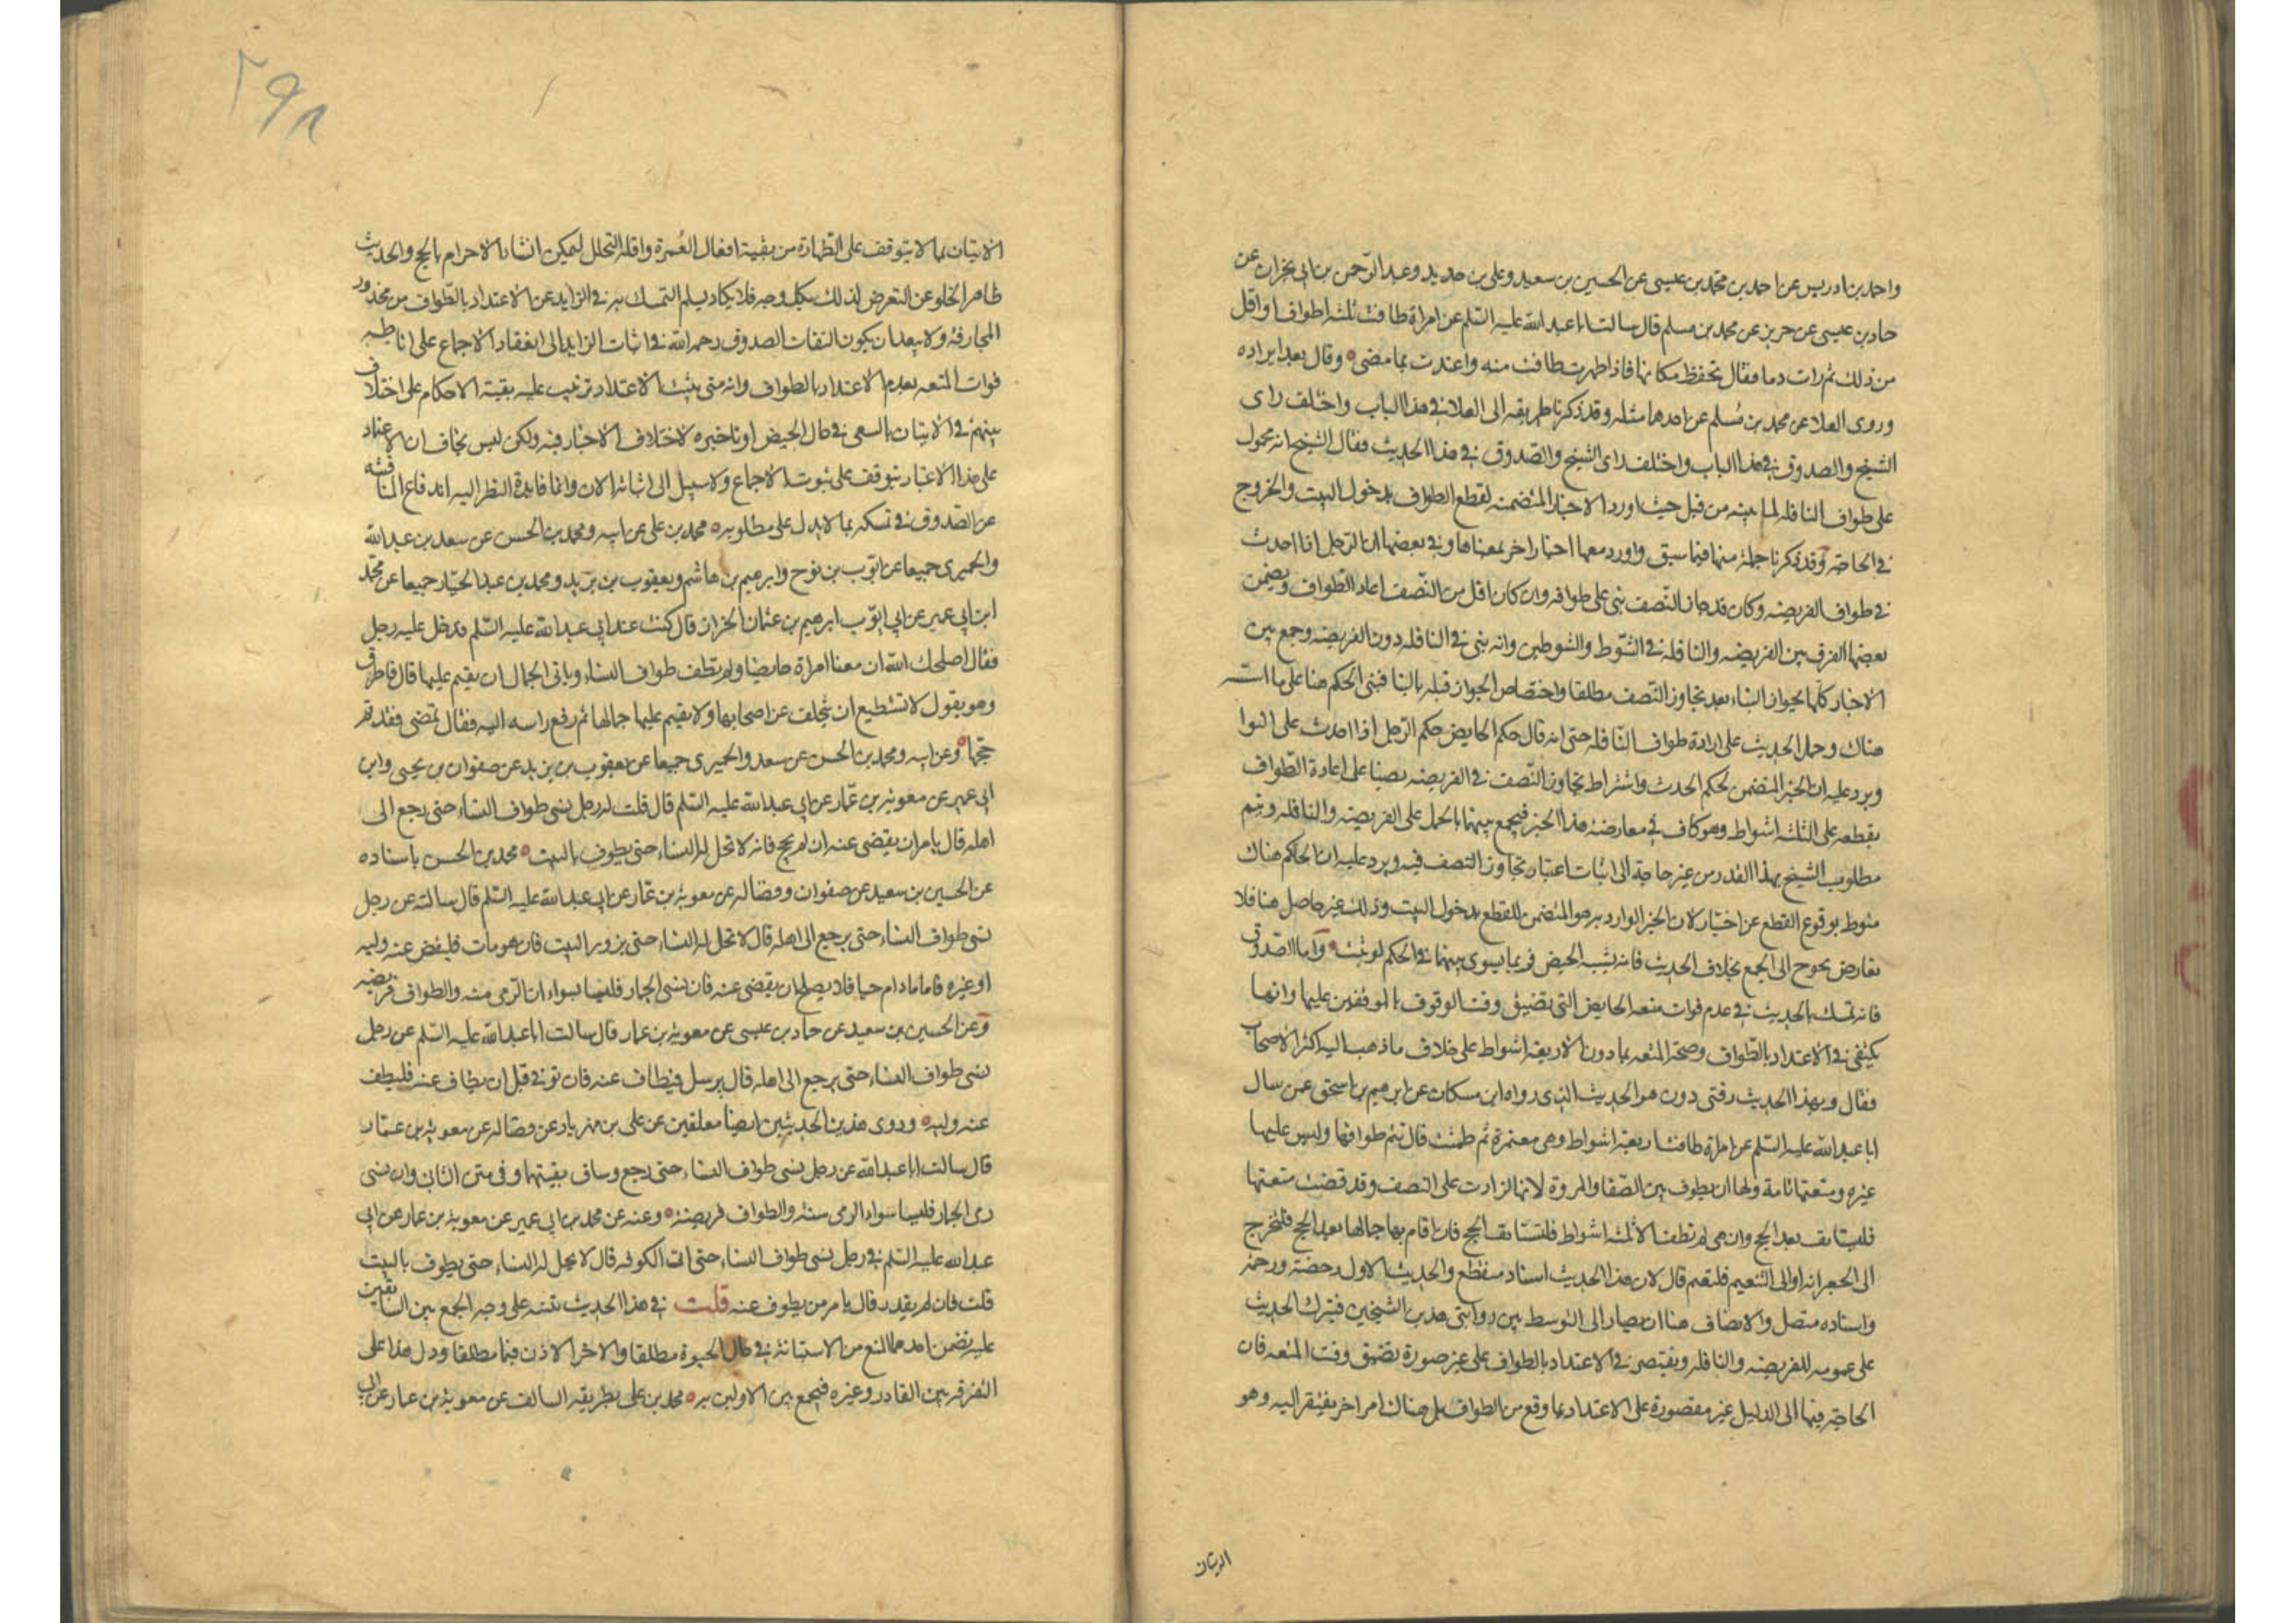 واحمد بن ادريس عن احمد بن محمد بن عيسى عن الحسين بن سعيد وعلى بن حديد وعبد الرحمن بن ابى نجران عن
حماد بن عيسى عن حريز عن محمد بن مسلم قال سالت ابا عبد الله عليه السلم عن امراة طافت ثلثة اطواف او اقل
من ذلك ثم رات دما فقال تحفظ مكانها فاذا طهرت طافت منه واعتدت بما مضى وقال بعد ايراده
وروى العلا عن محمد بن مسلم عن احدهما مثله وقد ذكرنا طريقه الى العلا فى هذا الباب واختلف راى
الشيخ والصدوق فى هذا الباب واختلف راى الشيخ والصدوق فى هذا الحديث فقال الشيخ انه محمول
على طواف النافله لما بينه من قبل حيث اورد الاخبار المتضمنه لقطع الطواف بدخول البيت والخروج
فى الحاجة وقد ذكرنا جملة منها فيما سبق واورد معها اخبارا اخر بمعناها وفى بعضها ان الرجل اذا احدث
فى طواف الفريضه وكان قد جاز النصف بنى على طوافه وان كان اقل من النصف اعاد الطواف ويضمن
بعضها الفرق بين الفريضه والنافله فى الشوط والشوطين وانه بنى فى النافله دون الفريضه وجمع بين
الاخبار كلها بجواز البناء بعد تجاوز النصف مطلقا واختصاص الجواز قبله بالنا فبنى الحكم هنا على ما اسسه
هناك وحمل الحديث على ارادة طواف النافله حتى انه قال حكم الحايض حكم الرجل اذا احدث على السوا
ويرد عليه ان الخبر المتضمن لحكم الحدث واشتراط تجاوز النصف فى الفريضه نصينا على اعادة الطواف
بقطعه على الثلثه اشواط وهو كاف فى معارضة هذا الخبر فيجمع بينهما بالحمل على الفريضه والنافله ويتم
مطلوب الشيخ بهذا القدر من غير حاجة الى اثبات اعتبار تجاوز النصف فيه ويرد عليه ان الحكم هناك
منوط بوقوع القطع عن اختيار لان الخبر الوارد به هو المتضمن للقطع بدخول البيت وذلك غير حاصل هنا فلا
تعارض يحوج الى الجمع بخلاف الحديث فانه يشبه الحيض فربما يسوى بينهما فى الحكم لو ثبت واما الصدوق
فانه تمسك بالحديث فى عدم فوات متعه الحايض التى تضيق وقت الوقوف بالموقفين عليها وانها
يكتفى فى الاعتداد بالطواف وصحة المتعه بما دون الاربعة اشواط على خلاف ما ذهب اليه اكثر الاصحاب
فقال وبهذا الحديث افتى دون هو الحديث الذى رواه ابن مسكان عن ابرهيم بن اسحق عمن سال
ابا عبد الله عليه السلم عن امراة طافت اربعة اشواط وهى معتمرة ثم طمثت قال تتم طوافها وليس عليها
غيره ومتعتها تامة ولها ان يطوف بين الصفا والمروة لانها زادت على النصف وقد قضت متعتها
فلتستانف بعد الحج وان هى لم تطف الا ثلثة اشواط فلتستانف الحج فان اقام بها جمالها بعد الحج فلتخرج
الى الجعرانه او الى التنعيم فلتعتمر قال لان هذا الحديث اسناده منقطع والحديث الاول رخصة ورحمة
واسناده متصل والانصاف هنا ان يصار الى التوسط بين روايتى هذين الشيخين فيترك الحديث
على عمومه للفريضه والنافله ويقتصر فى الاعتداد بالطواف على غير صورة تضيق وقت المتعه فان
الحاجة فيها الى الدليل غير مقصورة على الاعتداد بما وقع من الطواف بل هناك امر اخر يفتقر اليه وهو
الاتيان
٢٩٨
الاتيان بما لا يتوقف على الطهارة من بقية افعال العُمرة واقله التحلل ليمكن انشاء الاحرام بالحج والحديث
ظاهر الخلو عن التعرض لذلك بكل وجه فلا يكاد يسلم التمسك به فى الزايد عن الاعتداد بالطواف من محذور
المجازفة ولا يبعد ان يكون التفات الصدوق رحمه الله فى اثبات الزايد الى انعقاد الاجماع على اناطه
فوات المتعه بعدم الاعتداد بالطواف وانه متى يثبت الاعتداد ترتب عليه بقية الاحكام على اختلاف
بينهم فى الاتيان بالسعى فى حال الحيض او تاخيره لاختلاف الاخبار فيه ولكن ليس بخاف ان الاعتماد
على هذا الاعتبار يتوقف على ثبوت الاجماع ولا سبيل الى اثباته الان وانما فايدة النظر اليه اندفاع المناقشه
عن الصدوق فى تمسكه بما لا يدل على مطلوبه محمد بن على عن ابيه ومحمد بن الحسن عن سعد بن عبد الله
والحميرى جميعا عن ايوب بن نوح وابرهيم بن هاشم ويعقوب بن يزيد ومحمد بن عبد الجبار جميعا عن محمد
ابن ابى عمير عن ابى ايوب ابرهيم بن عثمان الخزاز قال كنت عند ابى عبد الله عليه السلم فدخل عليه رجل
فقال اصلحك الله ان معنا امراة حايضا ولم تطف طواف النساء ويابى الجمال ان يقيم عليها قال فاطرق
وهو يقول لا تستطيع ان يتخلف عن اصحابها ولا يقيم عليها جمالها ثم رفع راسه اليه فقال تمضى فقد تم
حجها وعن ابيه ومحمد بن الحسن عن سعد والحميرى جميعا عن يعقوب بن يزيد عن صفوان بن يحيى وابن
ابى عمير عن معويه بن عمار عن ابى عبد الله عليه السلم قال قلت له رجل نسى طواف النساء حتى رجع الى
اهله قال يامر ان يقضى عنه ان لم يحج فانه لا تحل له النساء حتى يطوف بالبيت محمد بن الحسن باسناده
عن الحسين بن سعيد عن صفوان وفضاله عن معوية بن عمار عن ابى عبد الله عليه السلم قال سالته عن رجل
نسى طواف النساء حتى يرجع الى اهله قال لا تحل له النساء حتى يزور البيت فان هو مات فليقض عنه وليه
او غيره فاما ما دام حيا فلا يصلح ان يقضى عنه فان نسى الجمار فليسا بسواء ان الرمى سنه والطواف فريضه
وعن الحسين بن سعيد عن حماد بن عيسى عن معوية بن عمار قال سالت ابا عبد الله عليه السلم عن رجل
نسى طواف النساء حتى يرجع الى اهله قال يرسل فيطاف عنه فان توفى قبل ان يطاف عنه فليطف
عنه وليه وروى هذين الحديثين ايضا معلقين عن على بن مهزيار عن فضاله عن معويه بن عمار
قال سالت ابا عبد الله عن رجل نسى طواف النساء حتى رجع وساق بقيتهما وفى متن الثانى وان نسى
رمى الجمار فليسا سواء الرمى سنة والطواف فريضة وعنه عن محمد بن ابى عمير عن معوية بن عمار عن ابى
عبد الله عليه السلم فى رجل نسى طواف النساء حتى اتى الكوفه قال لا يحل له النساء حتى يطوف بالبيت
قلت فان لم يقدر قال يامر من يطوف عنه قلت فى هذا الحديث تنبيه على وجه الجمع بين السابقين
عليه يضمن احدهما المنع من الاستنابة فى حال الحيوة مطلقا والاخر الاذن فيها مطلقا ودل هذا على
التفرقه بين القادر وغيره فيجمع بين الاولين به محمد بن على بطريقه السالف عن معوية بن عمار عن ابى